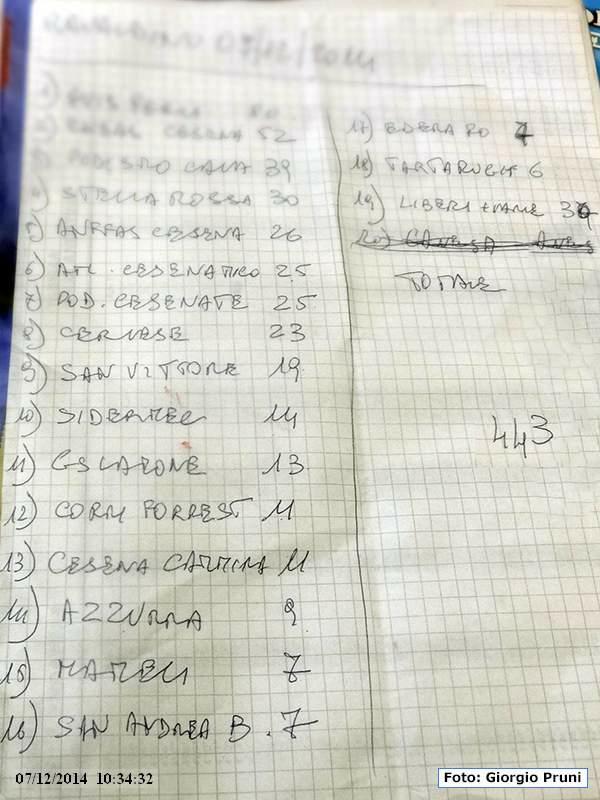 07/12/2014
1)
2) CESENA 52
3) PODISMO 39
4) STELLA ROSSA 30
5) ANFFAS CESENA 26
6) ATL. CESENATICO 25
7) POD. CESENATE 25
8) CERVESE 23
9) SAN VITTORE 19
10) SIDERMEC 14
11) GS LAMONE 13
12) CORRI FORREST 11
13) CESENA CAMMINA 11
14) AZZURRA 9
15) MAMELI 7
16) SAN ANDREA B. 7
17) EDERA RO 7
18) TARTARUGHE 6
19) LIBERI + FAME
20)
TOTALE
443
07/12/2014 10:34:32
Foto: Giorgio Pruni